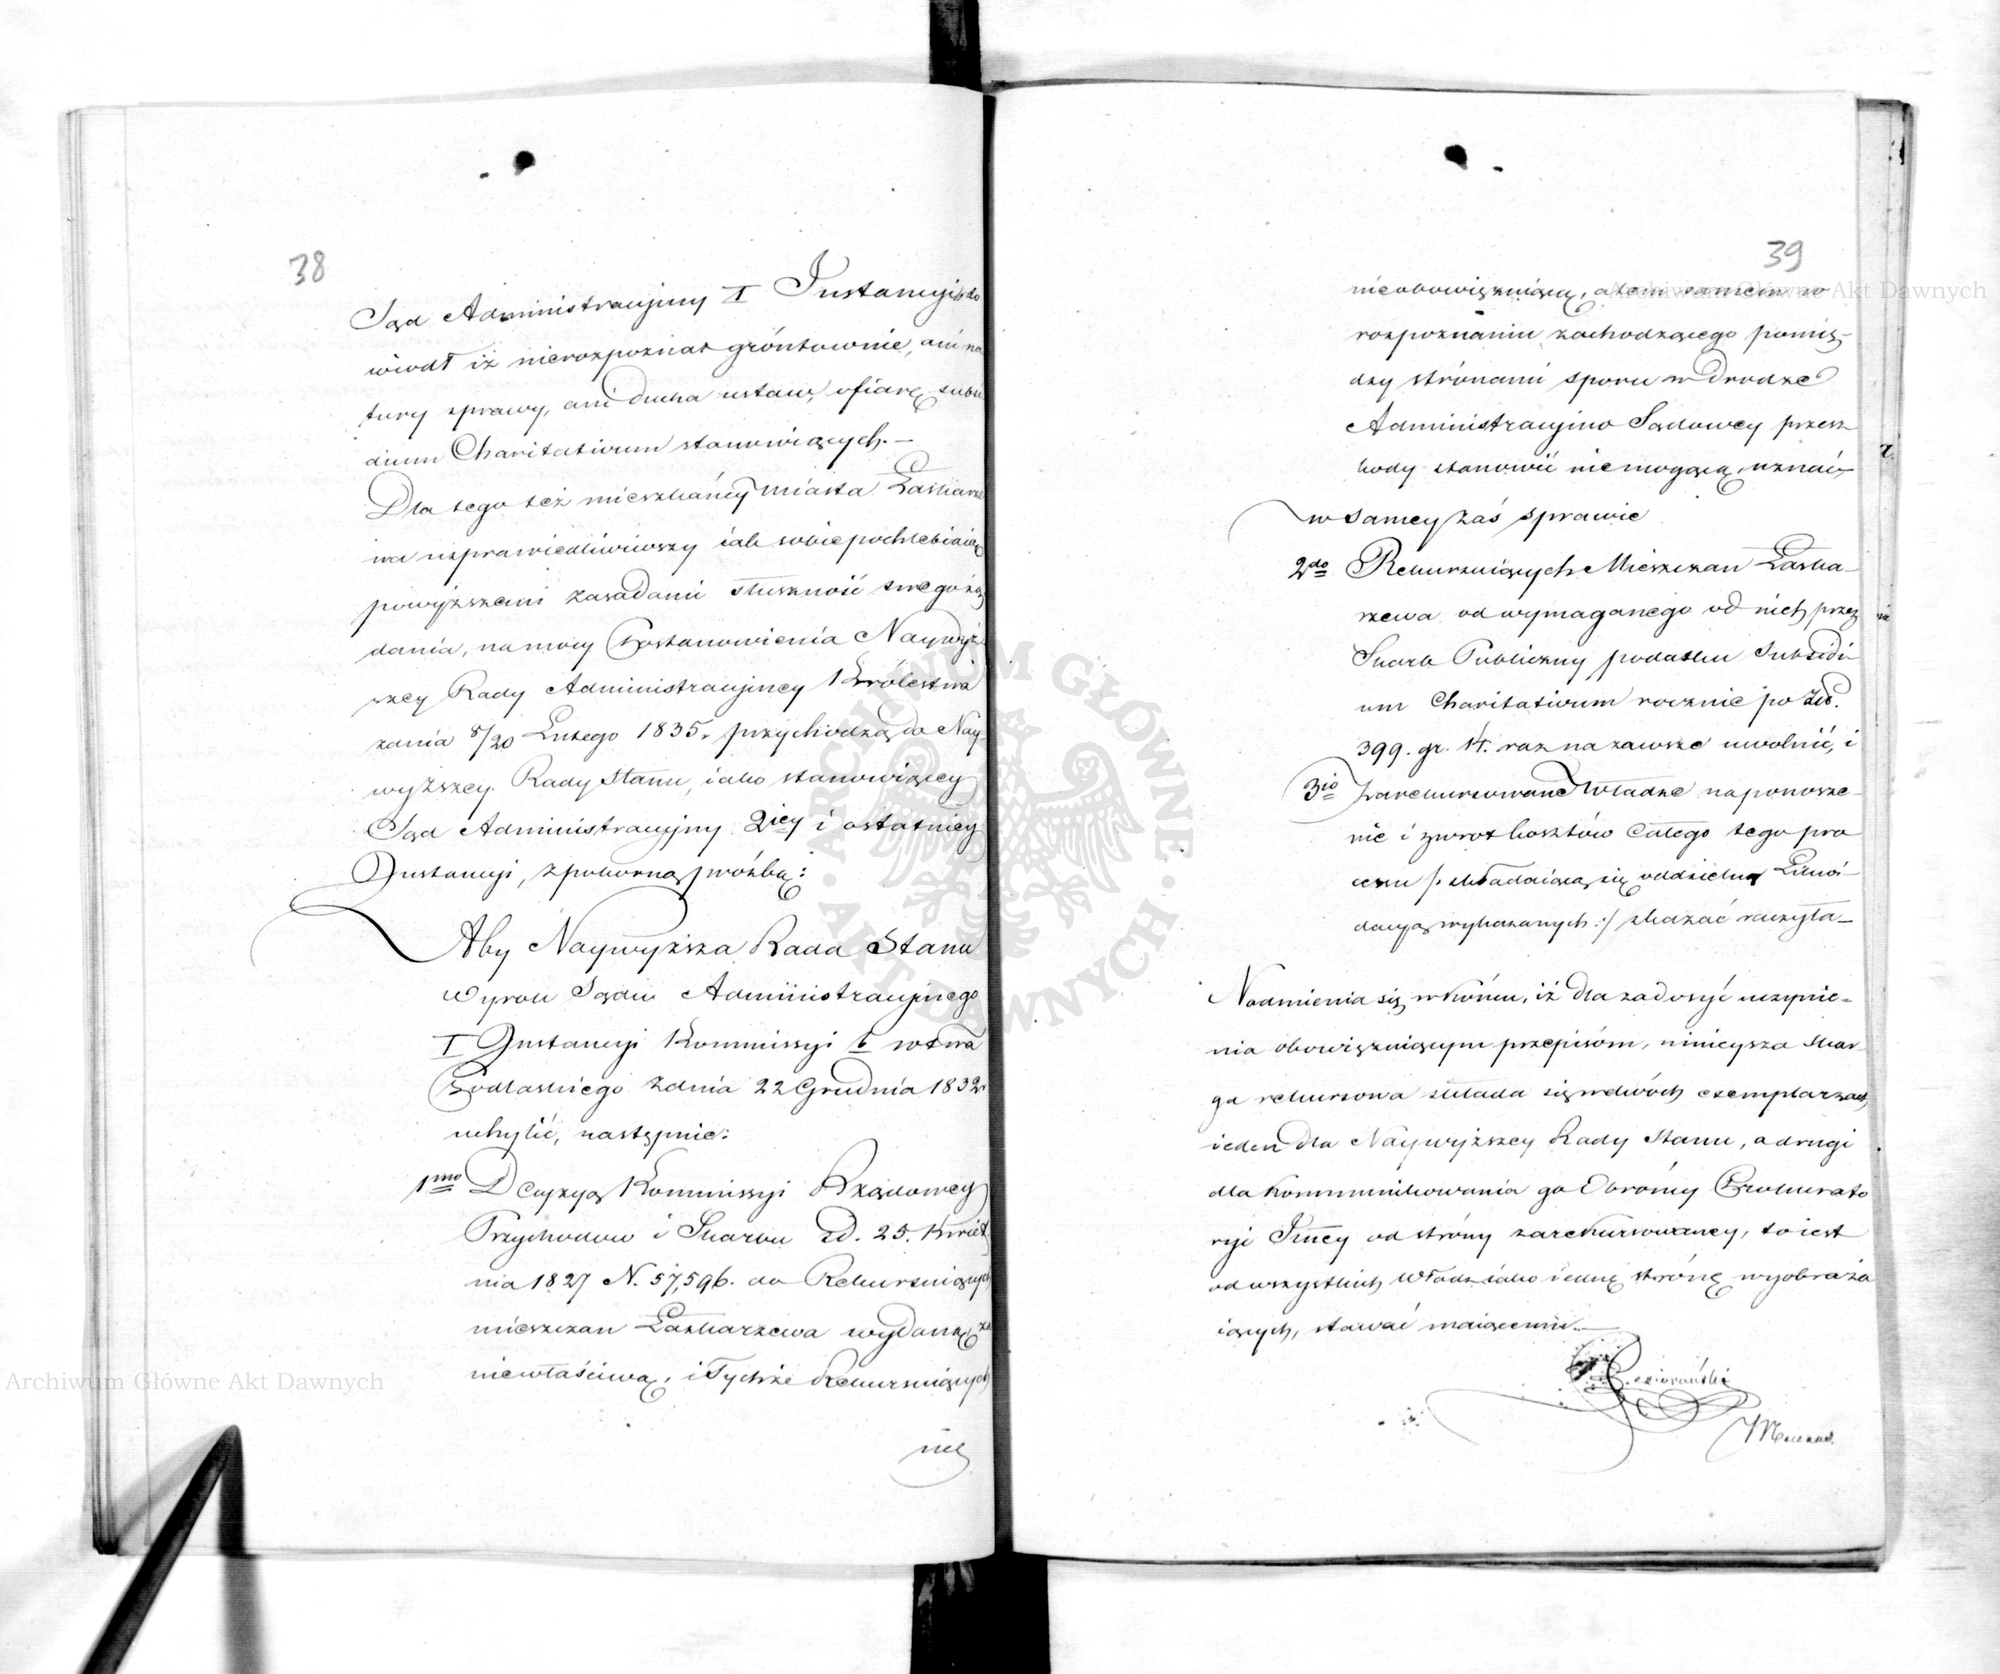 38
Sąd Administracyjny I Instancyi do
wiodł iż nierozpoznał gróntownie, ani na
tury sprawy, ani ducha ustaw, ofiarę subsi
dium Charitativum stanowiących. —
Dla tego też mieszkańcy miasta Łaskarze
wa usprawiedliwiwszy iak sobie pochlebiaią
powyższemi zasadami słuszność swego żą
dania, na mocy Postanowienia Naywyż
szey Rady Administracyiney Królestwa
z dnia 8/20 Lutego 1835 r. przychodzą do Nay
wyższey Rady Stanu, iako stanowiącey
Sąd Administracyjny 2iey i ostatniey
Instancyi, z pokorną prośbą:
Aby Naywyższa Rada Stanu
wyrok Sądu Administracyjnego
I Instancyi Kommissyi b. wztwa
Podlaskiego z dnia 22 Grudnia 1832 r
uchylić, następnie:
1mo Decyzyą Kommissyi Rządowey
Przychodow i Skarbu z d. 25. Kwiet
nia 1827 N. 57,596. do Rekursuiących
mieszczan Łaskarzewa wydaną za
niewłaściwą, i Tychże Rekursuiących
nie
39
nieobowięzuiącą, a tem samem w
rozpoznaniu zachodzącego pomię-
dzy stronami sporu w drodze
Administracyjno Sądowey przesz
kody stanowić niemogącą, uznać,
w samey zaś sprawie
2do Rekursuiących Mieszczan Łaska-
rzewa od wymaganego od nich przez
Skarb Publiczny podatku Subsidi
um Charitativum rocznie po Złp.
399. gr. 14. raz na zawsze uwolnić, i
3io Zarekursowane Władze na ponosze-
nie i zwrot kosztów całego tego pro
cessu /: składaiącą się oddzielną Likwi-
dacyą wykazanych :/ skazać raczyła —
Nadmienia się w końcu, iż dla zadosyć uczynie-
nia obowięzuiącym przepisom, ninieysza skar-
ga rekursowa składa się w dwóch exemplarzach
ieden dla Naywyższey Rady Stanu, a drugi
dla kommunikowania go Obrońcy Prokurato
ryi Jlney od strony zarekursowaney, to iest
od wszystkich Władz iako iednę stronę wyobraża
iących, stawać maiącemu. —
Archiwum Główne Akt Dawnych
Archiwum Główne Akt Dawnych
ARCHIWUM GŁÓWNE · AKT DAWNYCH ·